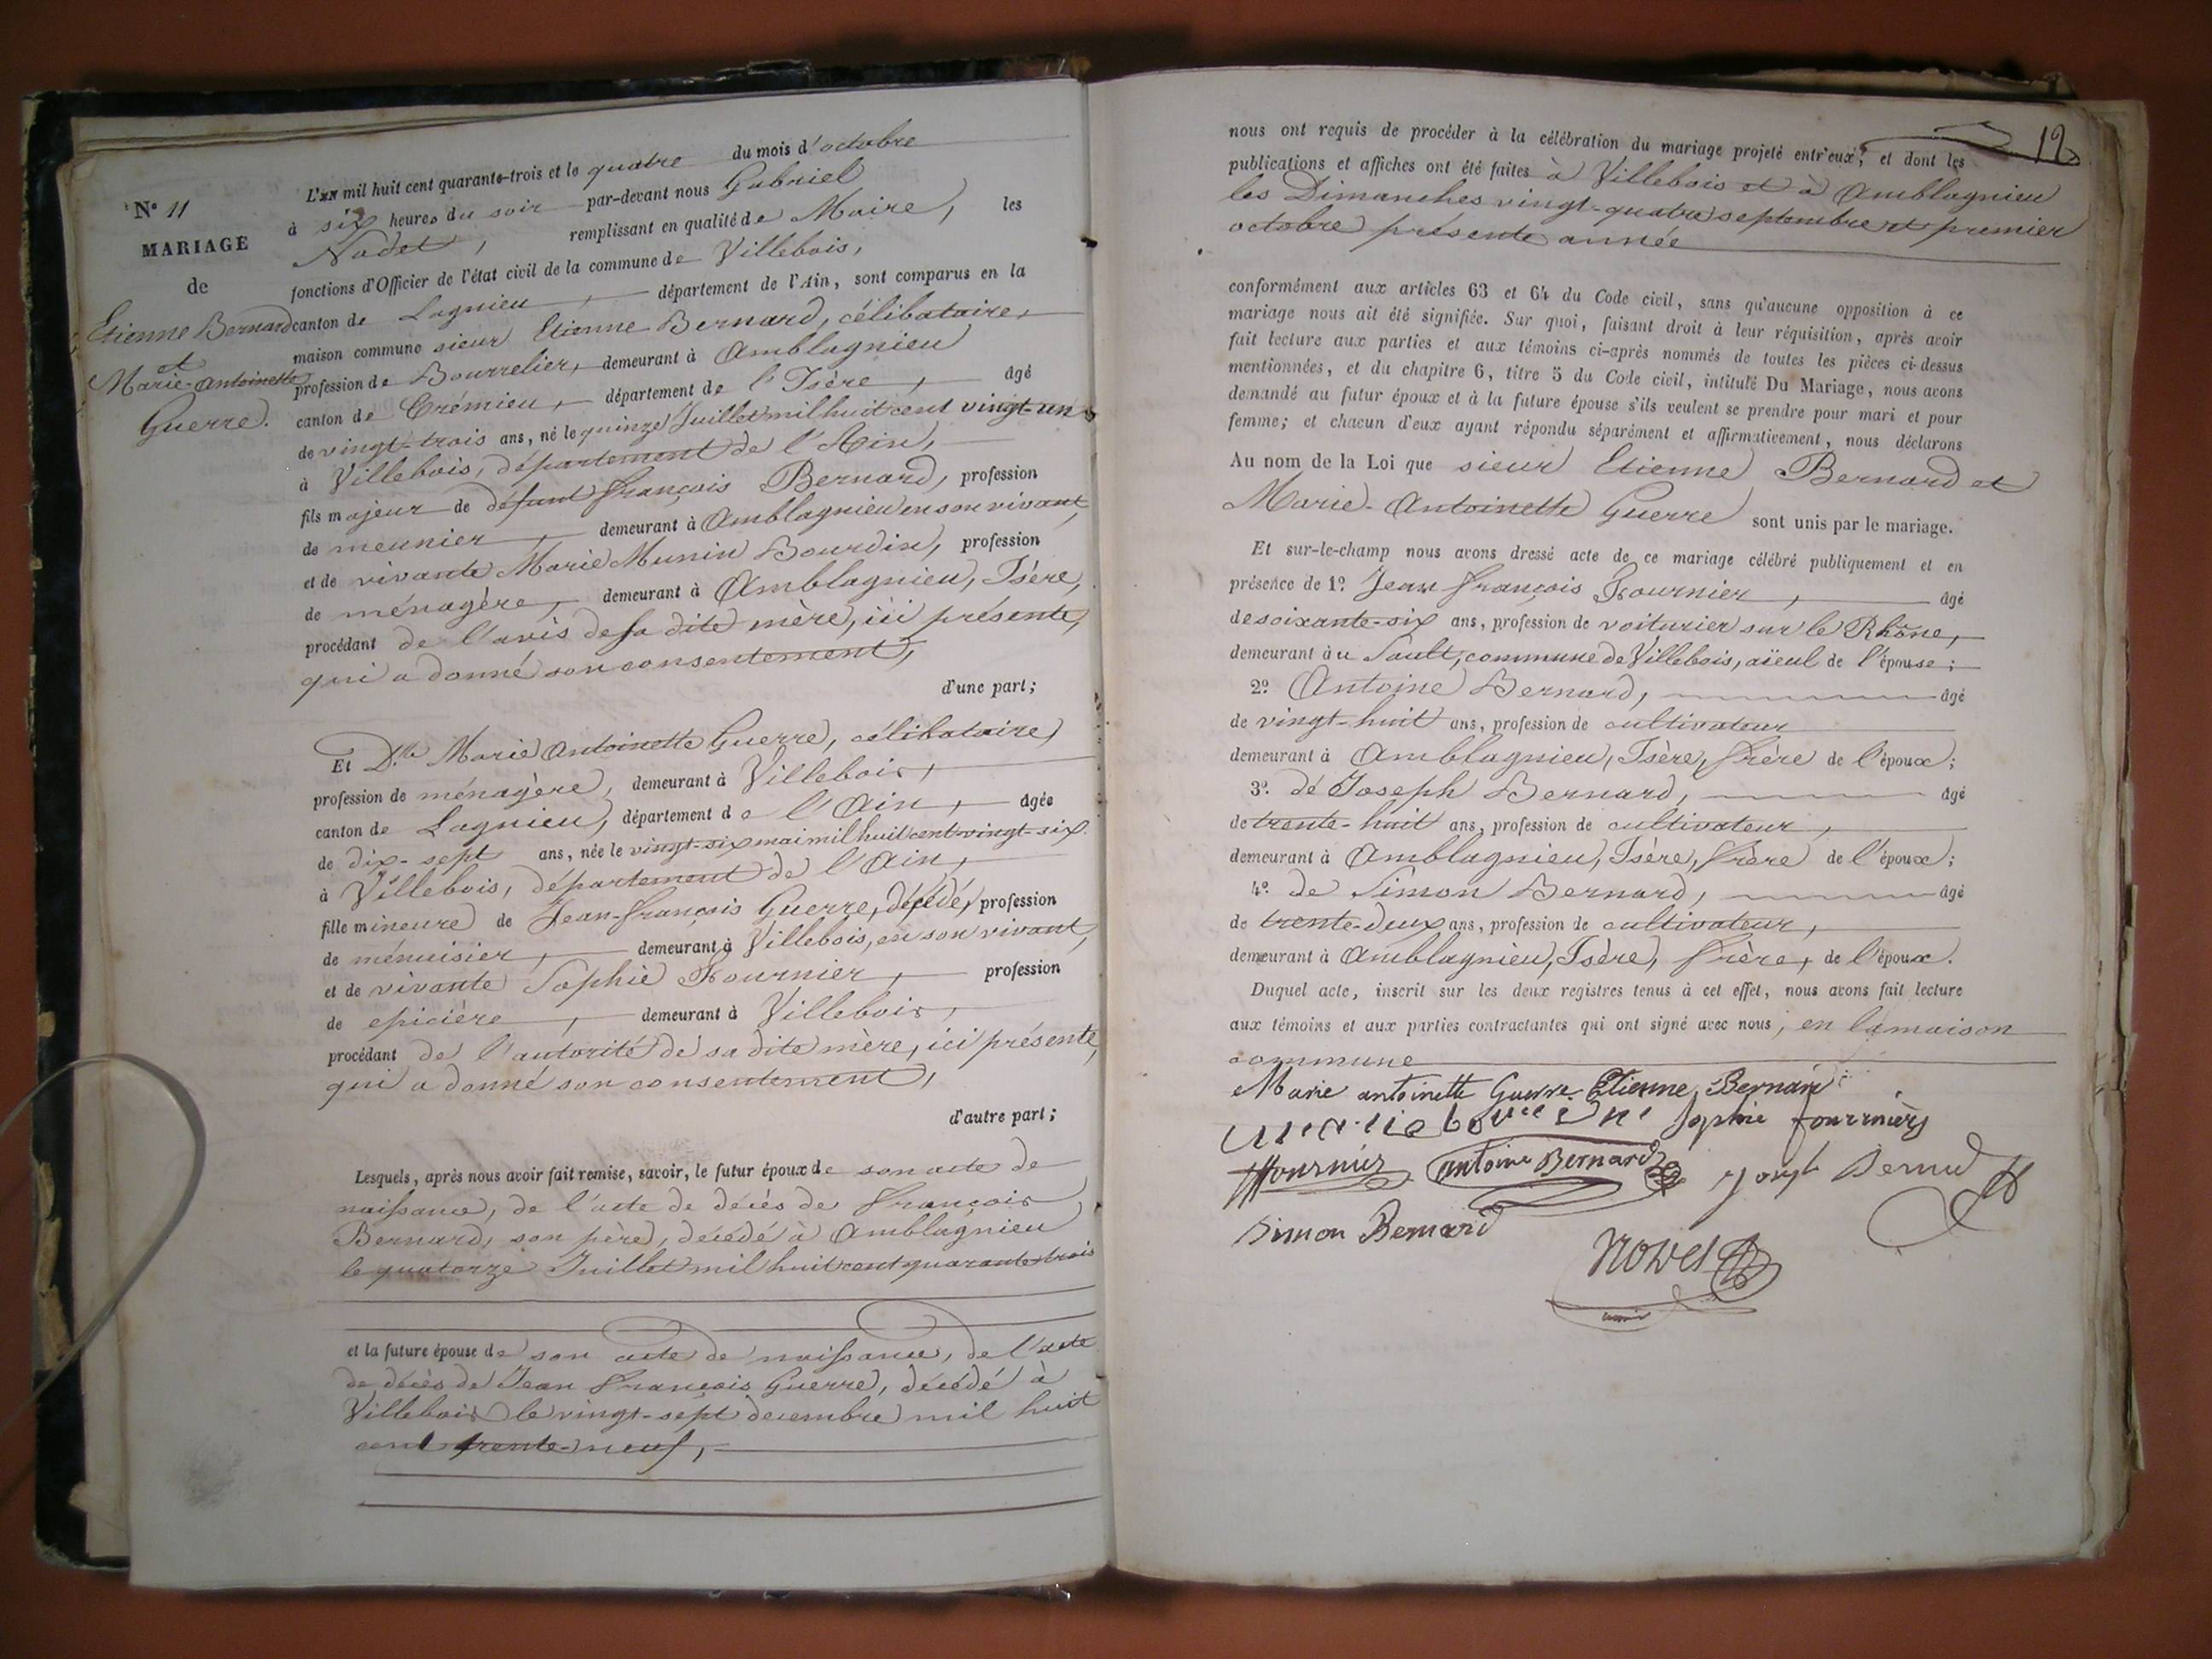 N° 11
MARIAGE
de
Etienne Bernard
et
Marie-Antoinette
Guerre.
L'an mil huit cent quarante-trois et le quatre du mois d'octobre
à six heures du soir par-devant nous Gabriel
Nodet, remplissant en qualité de Maire, les
fonctions d'Officier de l'état civil de la commune de Villebois,
canton de Lagnieu, département de l'Ain, sont comparus en la
maison commune sieur Etienne Bernard, célibataire,
profession de Bourrelier, demeurant à Amblagnieu
canton de Crémieu, département de l'Isère, âgé
de vingt-trois ans, né le quinze Juillet mil huit cent vingt-un
à Villebois, département de l'Ain,
fils majeur de défunt François Bernard, profession
de meunier, demeurant à Amblagnieu en son vivant,
et de vivante Marie Munin Bourdin, profession
de ménagère, demeurant à Amblagnieu, Isère,
procédant de l'avis de sa dite mère, ici présente,
qui a donné son consentement,
d'une part;
Et Dlle Marie Antoinette Guerre, célibataire,
profession de ménagère, demeurant à Villebois,
canton de Lagnieu, département de l'Ain, âgée
de dix-sept ans, née le vingt-six mai mil huit cent vingt-six
à Villebois, département de l'Ain,
fille mineure de Jean-François Guerre, décédé, profession
de ménuisier, demeurant à Villebois, en son vivant,
et de vivante Sophie Fournier, profession
de epicière, demeurant à Villebois,
procédant de l'autorité de sa dite mère, ici présente,
qui a donné son consentement,
d'autre part;
Lesquels, après nous avoir fait remise, savoir, le futur époux de son acte de
naissance, de l'acte de décès de François
Bernard, son père, décédé à Amblagnieu
le quatorze Juillet mil huit cent quarante trois
et la future épouse de son acte de naissance, de l'acte
de décès de Jean François Guerre, décédé à
Villebois le vingt-sept decembre mil huit
cent trente-neuf,
12
nous ont requis de procéder à la célébration du mariage projeté entr'eux, et dont les
publications et affiches ont été faites à Villebois et à Amblagnieu
les Dimanches vingt-quatre septembre et premier
octobre présente année
conformément aux articles 63 et 64 du Code civil, sans qu'aucune opposition à ce
mariage nous ait été signifiée. Sur quoi, faisant droit à leur réquisition, après avoir
fait lecture aux parties et aux témoins ci-après nommés de toutes les pièces ci-dessus
mentionnées, et du chapitre 6, titre 5 du Code civil, intitulé Du Mariage, nous avons
demandé au futur époux et à la future épouse s'ils veulent se prendre pour mari et pour
femme; et chacun d'eux ayant répondu séparément et affirmativement, nous déclarons
Au nom de la Loi que sieur Etienne Bernard et
Marie-Antoinette Guerre sont unis par le mariage.
Et sur-le-champ nous avons dressé acte de ce mariage célébré publiquement et en
présence de 1° Jean François Fournier, âgé
de soixante-six ans, profession de voiturier sur le Rhône,
demeurant au Sault, commune de Villebois, aïeul de l'épouse;
2° Antoine Bernard, âgé
de vingt-huit ans, profession de cultivateur
demeurant à Amblagnieu, Isère, frère de l'époux;
3° de Joseph Bernard, âgé
de trente-huit ans, profession de cultivateur,
demeurant à Amblagnieu, Isère, frère de l'époux;
4° de Simon Bernard, âgé
de trente-deux ans, profession de cultivateur,
demeurant à Amblagnieu, Isère, frère, de l'époux.
Duquel acte, inscrit sur les deux registres tenus à cet effet, nous avons fait lecture
aux témoins et aux parties contractantes qui ont signé avec nous, en la maison
commune
Marie antoinette Guerre Etienne Bernard
Sophie fournier
Fournier antoine Bernard Joseph Bernard
Simon Bernard
Nodet
maire